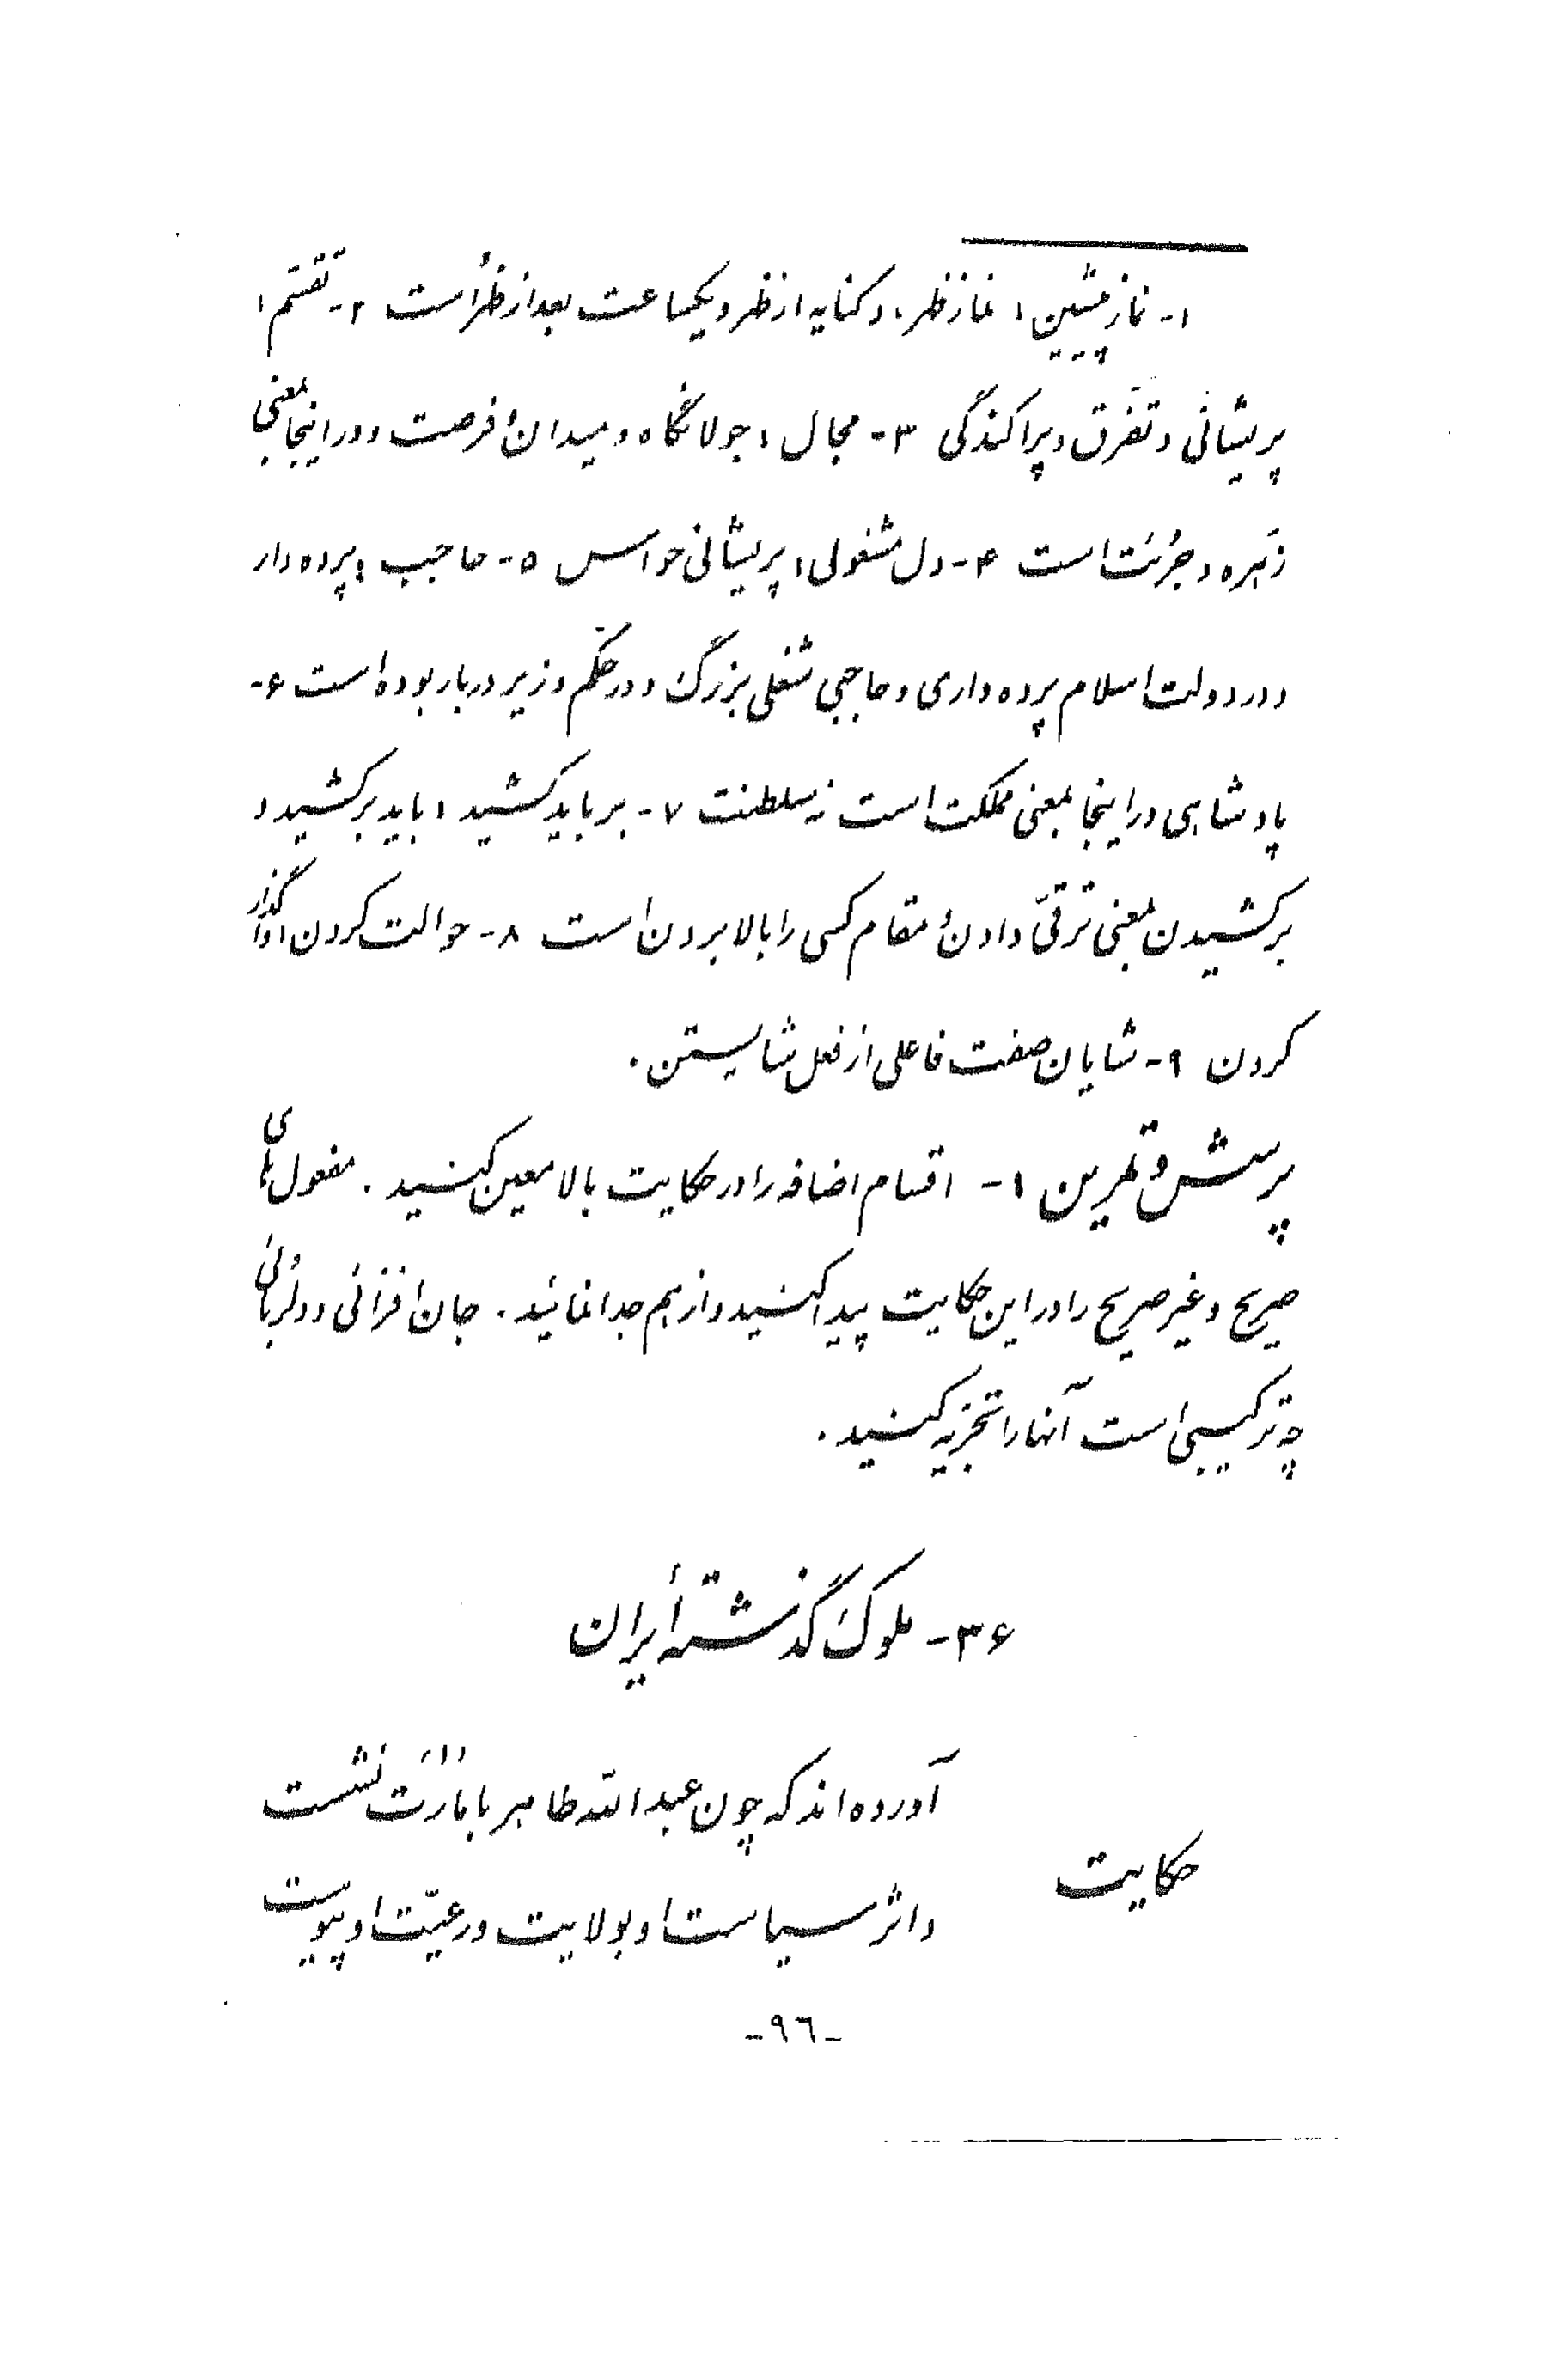 ۱- نماز پیشین، نماز ظهر، و کنایه از ظهر و یکساعت بعد از ظهر است ۲- تقسّم،
پریشانی و تفرّق و پراکندگی ۳- مجال، جولانگاه و میدان و فرصت و در اینجا بمعنی
زَهره و جرئت است ۴- دل مشغولی، پریشانی حواس ۵- حاجب، پرده دار
و در دولت اسلام پرده داری و حاجبی شغلی بزرگ و در حکم وزیر دربار بوده است ۶-
پادشاهی در اینجا بمعنی مملکت است نه سلطنت ۷- بر باید کشید، باید برکشید و
برکشیدن بمعنی ترقّی دادن و مقام کسی را بالا بردن است ۸- حوالت کردن، واگذار
کردن ۹- شایان صفت فاعلی از فعل شایستن.
پرسش و تمرین ۱- اقسام اضافه را در حکایت بالا معین کنید. مفعول های
صریح و غیر صریح را در این حکایت پیدا کنید و از هم جدا نمائید. جان افزائی و دلربائی
چه ترکیبی است آنها را تجزیه کنید.
۳۶- ملوک گذشتهٔ ایران
حکایت
آورده اند که چون عبدالله طاهر با مارَت نشست
و اثر سیاست او بولایت و رعیّت او پیوست
-۹۶-